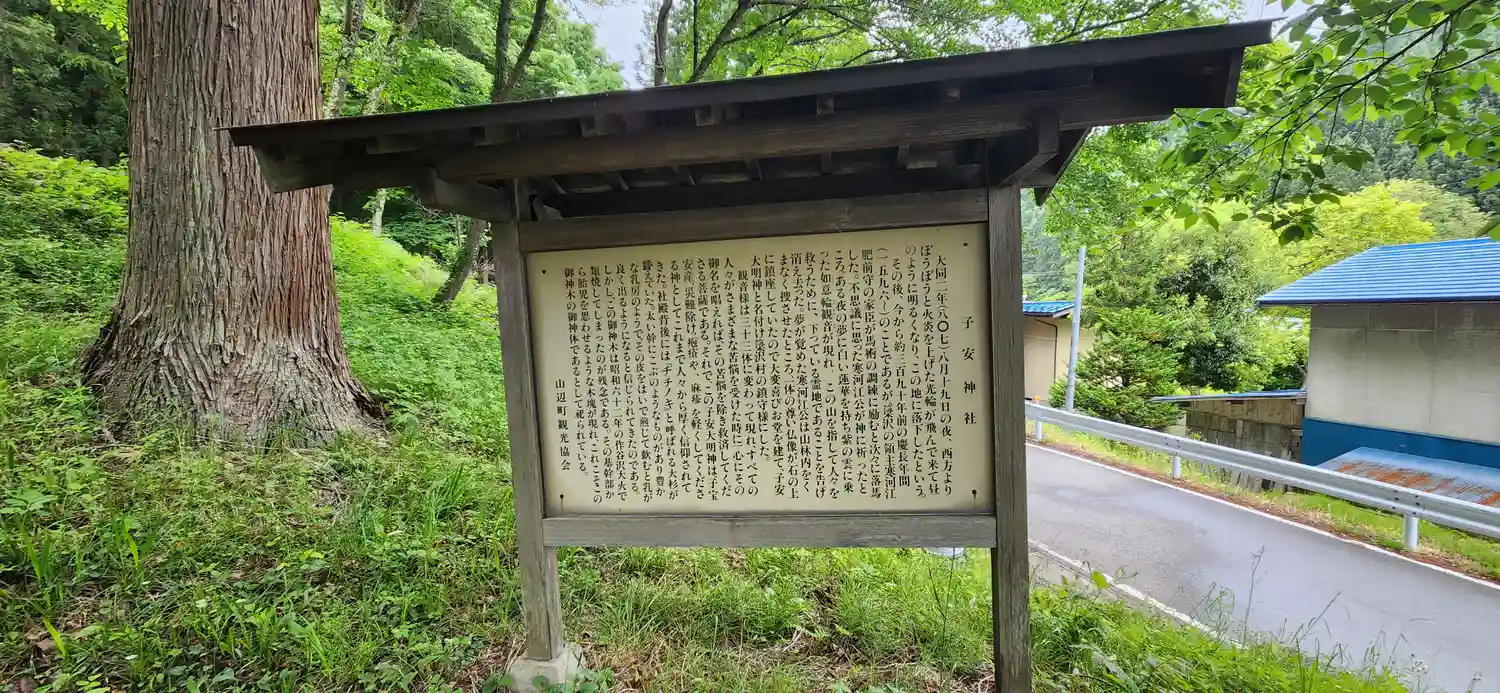 子安神社
大同二年(八〇七)八月十九日の夜、西方より
ぼうぼうと火炎を上げた光輪が飛んで来て昼
のように明るくなり、この地に落下したという。
その後、今から約三百九十年前の慶長年間
(一五九六〜)のことであるが、簗沢の領主寒河江
肥前守の家臣が馬術の調練に励むと次々に落馬
した。不思議に思った寒河江公が神に祈ったと
ころ、ある夜の夢に白い蓮華を持ち紫の雲に乗
った如意輪観音が現れ、この山を指して人々を
救うために下っている霊地であることを告げ
消え去った。夢が覚めた寒河江公は山林内をく
まなく捜させたところ、一体の尊い仏像が石の上
に鎮座していたので大変喜びお堂を建て、子安
大明神と名付け簗沢村の鎮守様にした。
観音様は三十三体に変わって現れ、すべての
人々がさまざまな苦悩を受けた時に一心にその
御名を唱えれば、その苦悩を除き救済してくだ
さる菩薩である。それでこの子安大明神は子宝
安産、災難除け、疱瘡や、麻疹を軽くしてくださ
る神としてこれまで人々から厚く信仰されて
きた。社殿背後には「チチノキ」と呼ばれる大杉が
聳えていた。太い幹にこぶのようなものがあり豊か
な乳房のようでその皮をはいで煎じて飲むと乳が
良く出るようになると信じられてきたのである。
しかしこの御神木は昭和六十一年の作谷沢大火で
類焼してしまったのが残念である。その基幹部か
ら胎児を思わせるような木塊が現れ、これこそこの
御神木の御神体であるとして祀られている。
山辺町観光協会